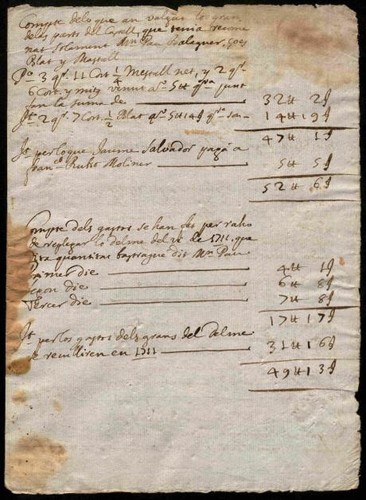 Compte delo que an valgut lo gra
dels parts del Castell, que tenia
nat solament Mn Pau Balaguer, pos
Blat y Mestall
Po 3 qrs 11 Cort 1/4 Mestall net, y 2 qrs
6 Cort y mitg vinut a 5tt qra junt
fan la suma de 32tt 2ſ
It 2 qrs 7 Cort 1/2 Blat a 5tt14ſ 14tt19ſ
47tt 1ſ
It perloque Jaume Salvador pagà a
Franco Rubt Moliner 5tt 5ſ
52tt 6ſ
Compte dels gastos se han fet per raho
de replegar lo delme del vi lo 1711, que
dit Mn Pau
primer die 4tt 1ſ
segon die 6tt 8ſ
Tercer die 7tt 8ſ
17tt17ſ
It per los gastos dels grans del Delme
se reculliren en 1711 31tt16ſ
49tt13ſ